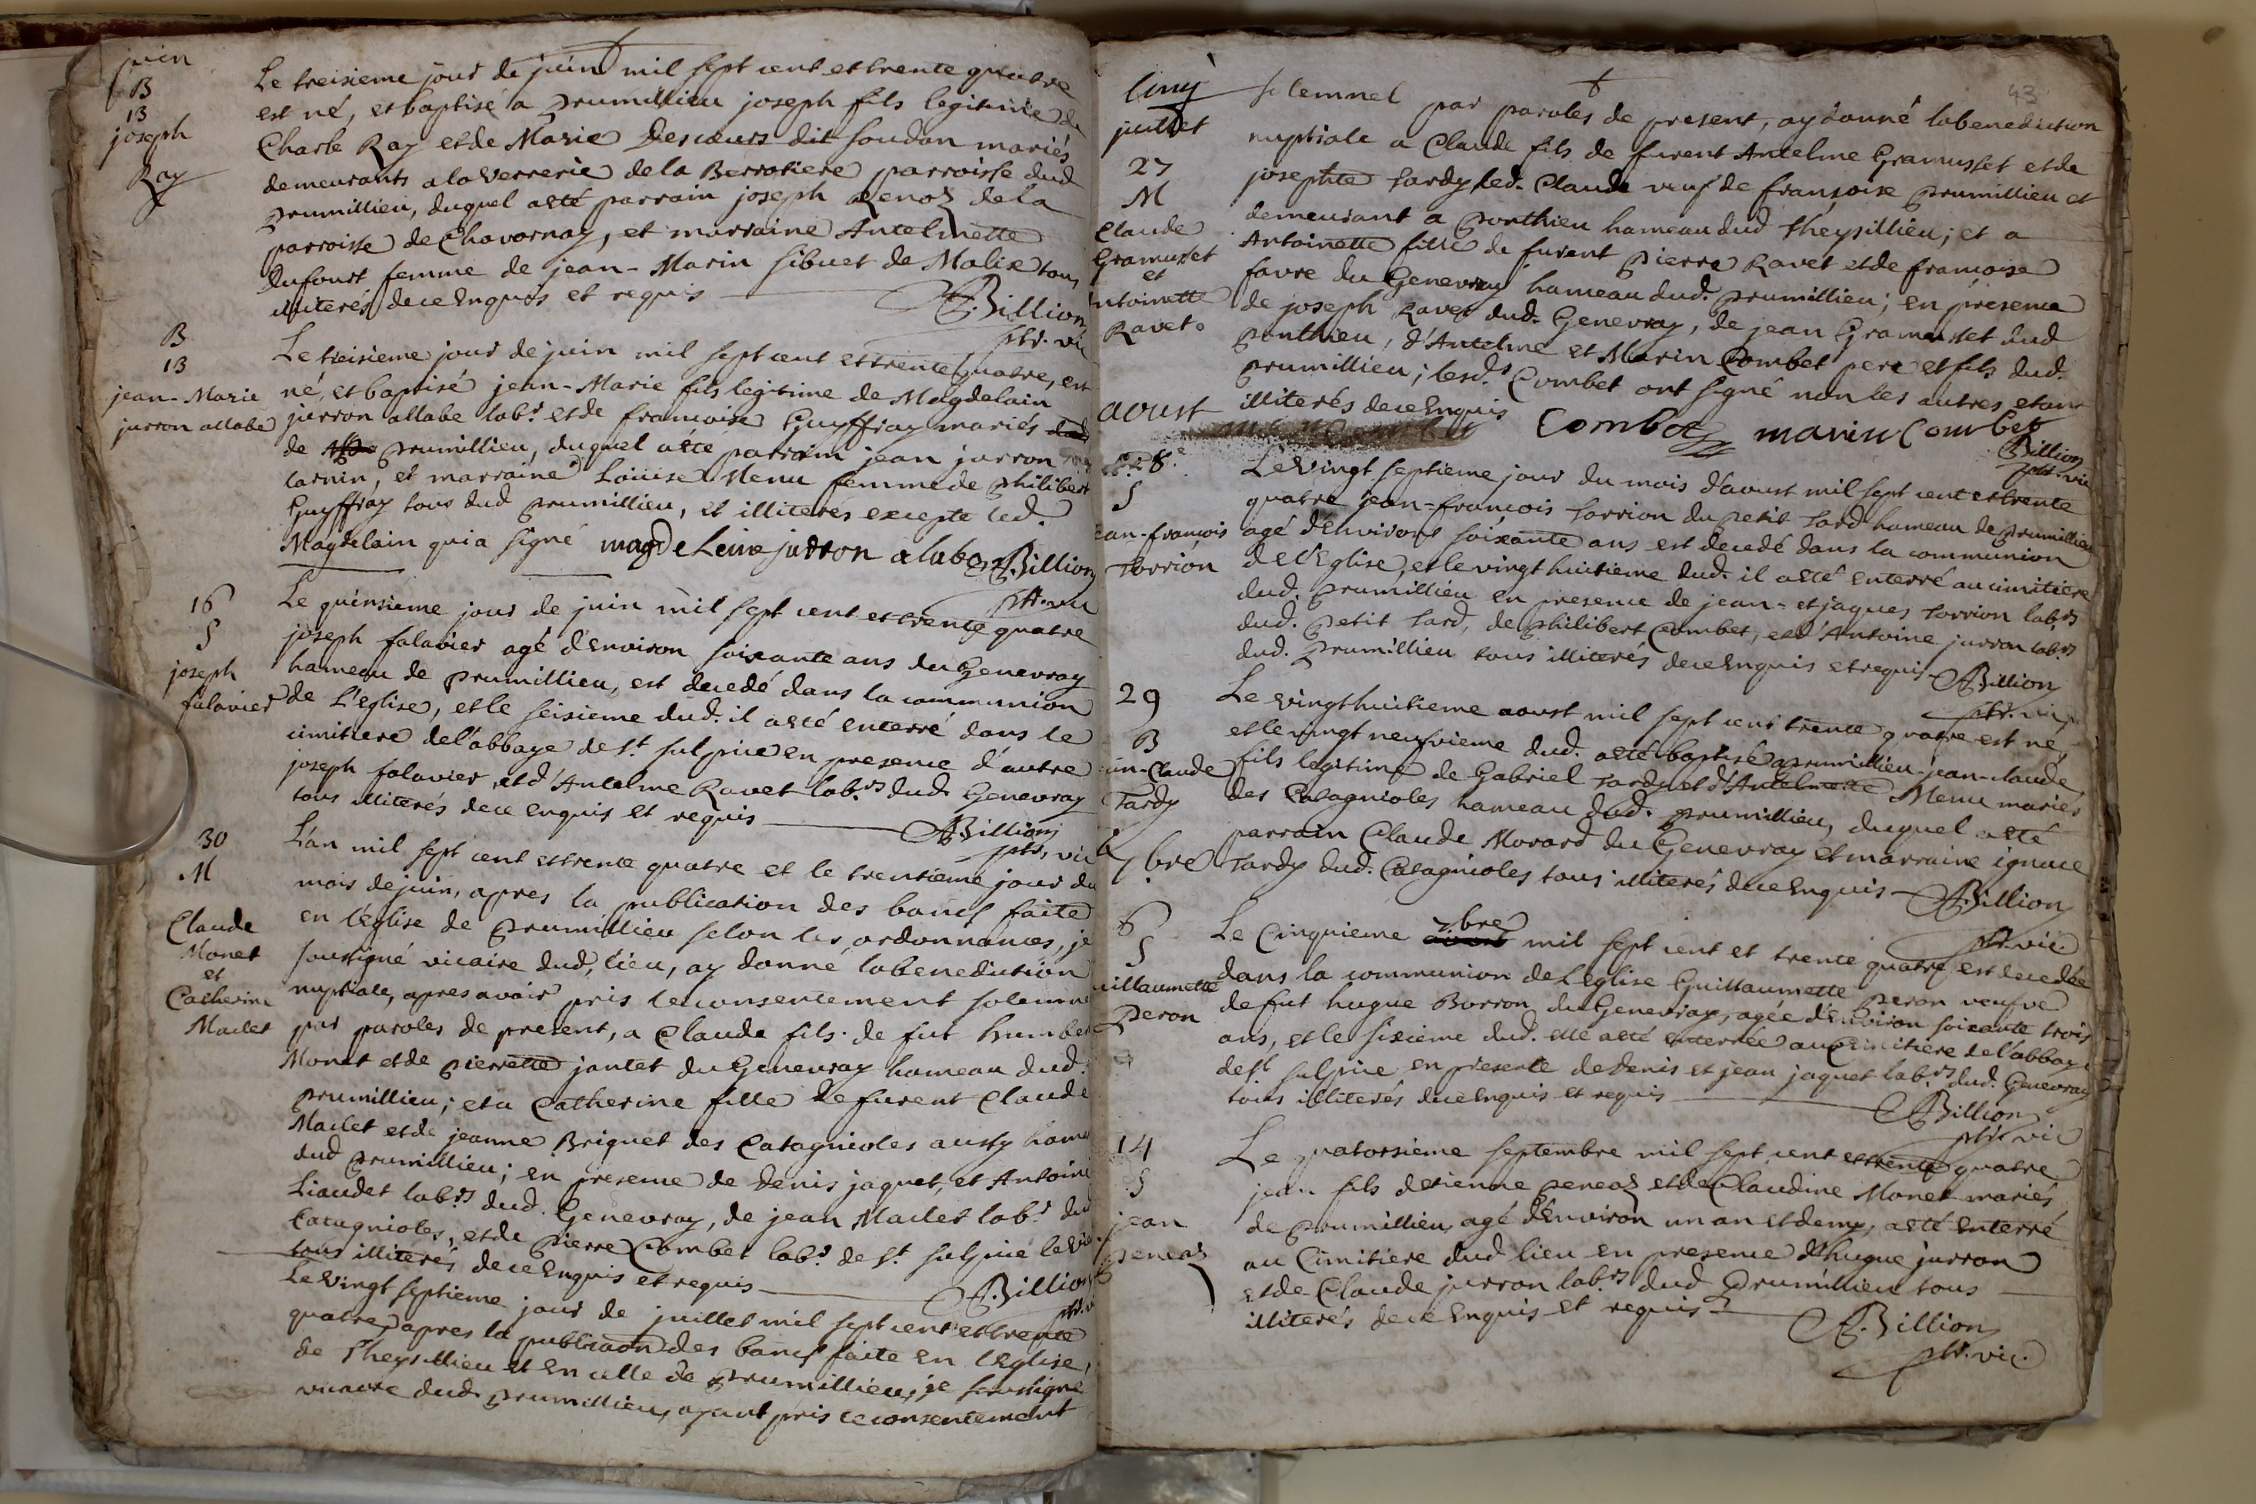 juin
B
13
joseph
Ray
Le treisieme jour de juin mil sept cent et trente quatre
est né, et baptisé a prumillieu joseph fils legitime de
Charle Ray et de Marie Descœurs dit soudan mariés
demeurants a la verrerie de la Berrotiere parroisse dud
prumillieu, duquel a eté parrain joseph Renoz de la
parroisse de Chavornay, et marraine Antelmette
Dufourt femme de jean-Marin sibuet de Malix tous
illiterés de ce enquis et requis
A.Billion
ptr. vic
B
13
jean-Marie
jurron allabe
Le treisieme jour de juin mil sept cent et trente quatre, est
né, et baptisé jean-Marie fils legitime de Magdelain
jurron allabe lab.r et de francoise Guyffray mariés
de prumillieu, duquel a eté parrain jean jurron
carnin, et marraine Louise Menu femme de philibert
Guyffray tous dud prumillieu, et illiterés excepté led.
Magdelain qui a signé magdeleine jurron alabe A.Billion
ptr. vic
16
S
joseph
falavier
Le quinsieme jour de juin mil sept cent et trente quatre
joseph falavier agé d'environ soixante ans du Genevray
hameau de prumillieu, est decedé dans la communion
de L'eglise, et le seisieme dud. il a eté enterré dans le
cimitiere de l'abbaye de st sulpice en presence d'autre
joseph falavier, et d'Antelme Ravet lab.rs dud. Genevray
tous illiterés de ce enquis et requis
A.Billion
ptr. vic
30
M
Claude
Monet
et
Catherine
Maclet
L'an mil sept cent et trente quatre et le trentieme jour du
mois de juin, apres la publication des bancs faite
en l'église de prumillieu selon les ordonnances, je
soussigné vicaire dud, lieu, ay donné la benediction
nuptiale, apres avoir pris le consentement solemne
par paroles de present, a Claude fils de fut humber
Monet et de pierrette jantet du Genevray hameau dud.
prumillieu; et a Catherine fille de furent Claude
Maclet et de jeanne Briquet des Catagnioles aussy hame
dud prumillieu; en presence de denis jaquet, et Antoine
Liaudet lab.rs dud. Genevray, de jean Maclet lab.r dud
Catagnioles, et de pierre Combet lab.r de st sulpice le vie
tous illiterés de ce enquis et requis
A.Billion
ptr. v
Le vingt septieme jour de juillet mil sept cent et trente
quatre apres la publicaon des bancs faite en l'Eglise
de Theysillieu et en celle de prumillieu, je soussigné
vicaire dud. prumillieu, ayant pris le consentement
43
juillet
27
M
Claude
Gramusset
et
ntoinette
Ravet
solemnel par paroles de present, ay donné la benediction
nuptiale a Claude fils de furent Antelme Gramusset et de
josephte tardy, led. Claude veuf de francoise prumillieu et
demeurant a ponthieu hameau dud theysillieu; et a
Antoinette fille de furent pierre Ravet et de francoise
favre du Genevray hameau dud. prumillieu; en presence
de joseph Ravet dud. Genevray, de jean Gramusset dud
ponthieu, d'Antelme et Marin Combet pere et fils dud.
prumillieu; lesd.s Combet ont signé non les autres etant
illiterés de ce enquis Combet marin Combet
Billion
ptr. vic
aoust
28
S
ean-françois
Torrion
Le vingt septieme jour du mois d'aoust mil sept cent et trente
quatre jean-francois torrion du petit tard hameau de prumillieu
agé d'Environs soixante ans est decedé dans la communion
de l'Eglise, et le vingt huitieme dud. il a eté enterré au cimitiere
dud. prumillieu en presence de jean- et jaques torrion lab.rs
dud. petit tard, de philibert Combet, et d'Antoine jurron lab.rs
dud. prumillieu tous illiterés de ce enquis et requis
A.Billion
ptr. vic
29
B
an-Claude
Tardy
Le vingt huitieme aoust mil sept cent trente quatre est né,
et le vingt neufvieme dud. a eté baptisé a prumillieu jean-claude
fils legitime de Gabriel Tardy et d'Antelmette Menu mariés
des Catagnioles hameau dud. prumillieu, duquel a eté
parrain Claude Morard du Genevray et marraine ignace
Tardy dud. Catagnioles tous illiterés de ce enquis
A.Billion
ptr. vic.
7bre
6
S
uillaumette
Peron
Le Cinquieme 7.bre mil sept cent et trente quatre est decedée
dans la communion de L'eglise Guillaumette peron veufve
de fut hugue Borron du Genevray, agée d'environ soixante trois
ans, et le sixieme dud. elle a eté enterrée au cimitiere de l'abbaye
de st sulpice en presence de denis et jean jaquet lab.rs dud. Genevray
tous illiterés de ce enquis et requis
A.Billion
ptr. vic
14
S
jean
peneaz
Le quatorsieme septembre mil sept cent et trente quatre
jean fils d'etienne peneaz et de Claudine Monet mariés
de prumillieu, agé d'environ un an et demy, a eté enterré
au Cimitiere dud lieu en presence d'hugue jurron
et de Claude jurron lab.rs dud. prumillieu tous
illiterés de ce enquis et requis
A.Billion
ptr. vic.